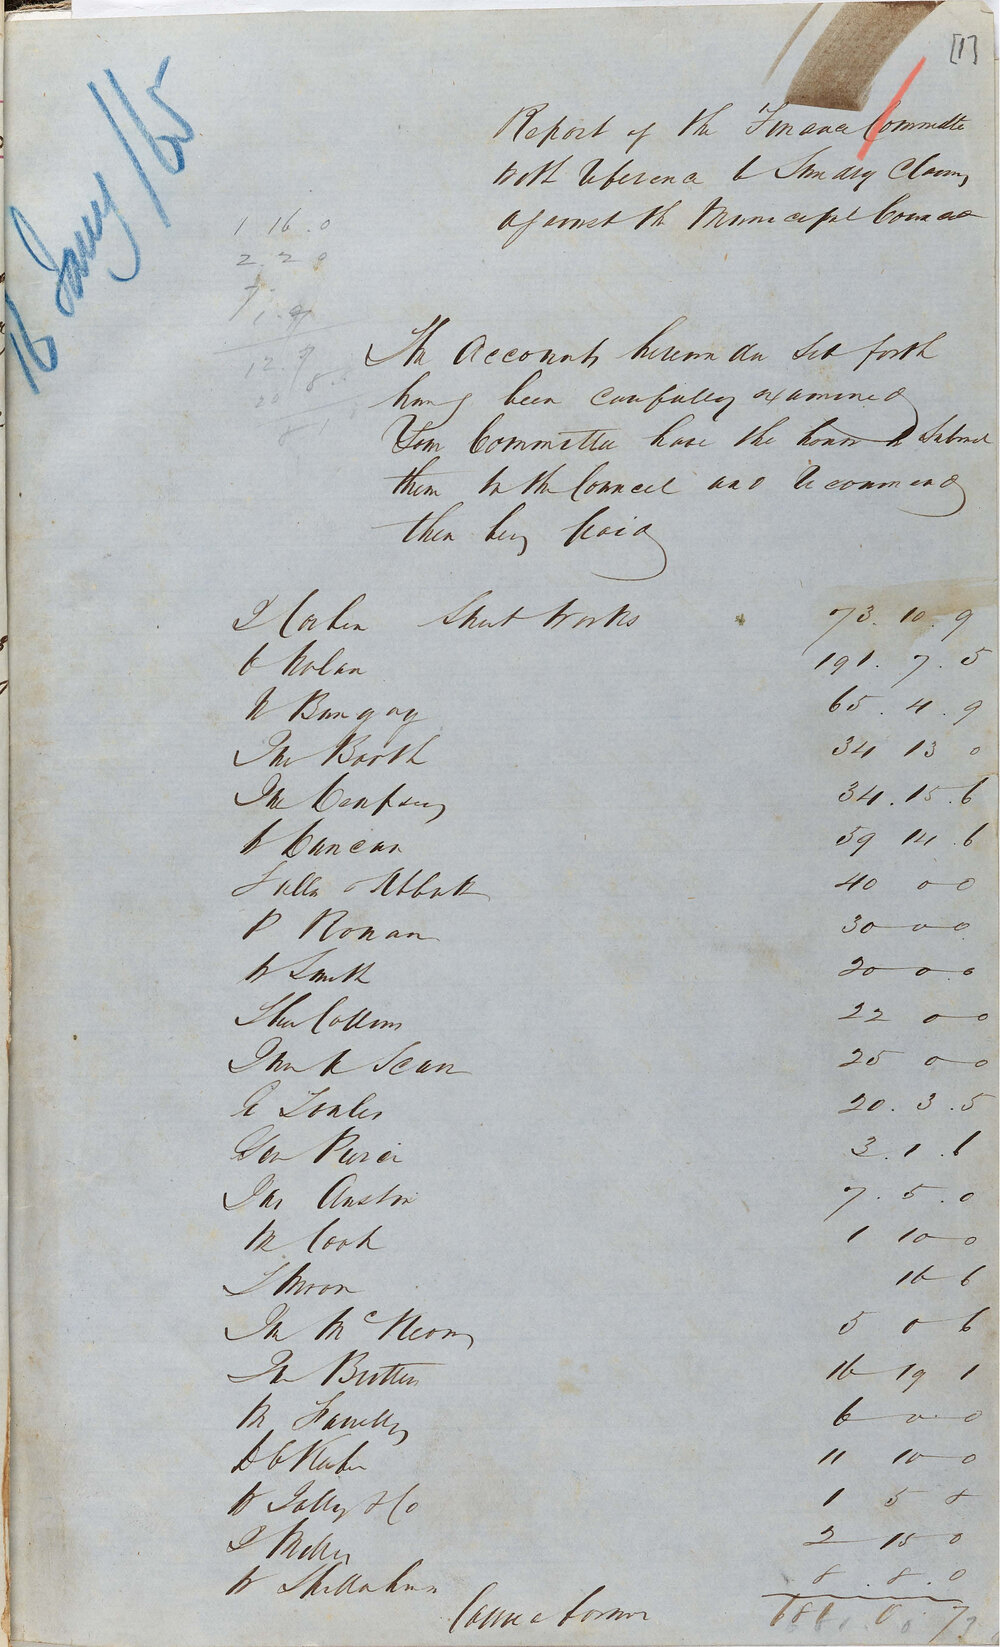 [1]
16 Jany /65
Report of the Finance Committee
with reference to Sundry Claims
against the Municipal Council
1 16 . 0
2 . 2 0
The Accounts hereunder set forth
having been carefully examined
Your Committee have the honor to Submit
them to the Council and recommend
them being paid
Street Works 73 . 10 . 9
Nolan 191 . 7 . 5
Bungay 65 . 4 . 9
Jno Booth 34 13 0
Jno Dempsey 34 . 15 . 6
W Duncan 59 14 . 6
40 0 0
P Ronan 30 0 0
W Smith 20 0 0
Thos Collins 22 0 0
25 0 0
20 . 3 . 5
Geo Pierce 3 . 1 . 6
Jas Austin 7 . 5 . 0
M Cook 1 10 0
Moon 16 6
Jno McKeony 5 0 6
Jno Butters 16 19 1
M Farrelly 6 0 0
11 10 0
& Co 1 5 8
Miller 2 15 0
8 . 8 . 0
681 0 . 7